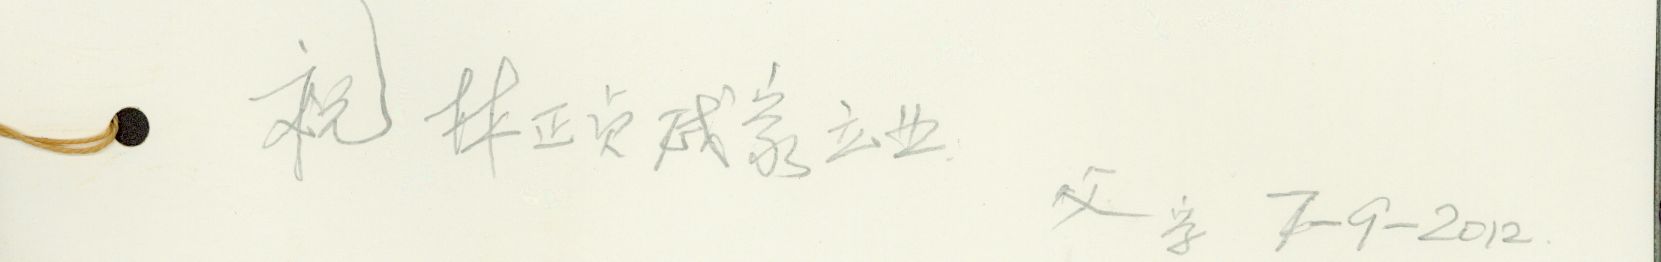 祝林正贞成家立业.
父字 7-9-2012.